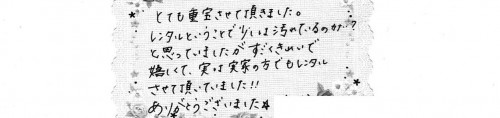 とても重宝させて頂きました。
レンタルということで少しは汚れているのか…?
と思っていましたがすごくきれいで
嬉しくて、実は実家の方でもレンタル
させて頂いていました!!
ありがとうございました★